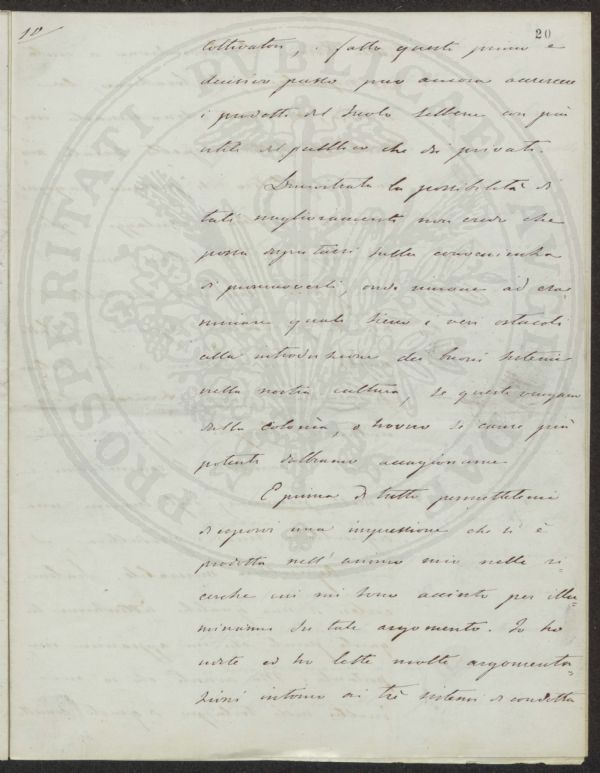 10/
20
Coltivatori, e fatto questo primo e
decisivo passo può ancora accrescere
i prodotti del suolo sebbene con più
utile del pubblico che dei privati.
Dimostrata la possibilità di
tali miglioramenti non credo che
possa disputarsi sulla convenienza
di promuoverli, onde rimane ad esa=
minare quali sieno i veri ostacoli
alla introduzione dei buoni sistemi
nella nostra cultura, se questi vengano
dalla colonìa, o ovvero se cause più
potenti dobbiamo accagionarne.
E prima di tutto permettetemi
di esporvi una impressione che si è
prodotta nell' animo mio nelle ri=
cerche cui mi sono accinto per illu=
minarmi su tale argomento. Io ho
udite ed ho lette molte argomenta=
zioni intorno ai tre sistemi di condotta
PROSPERITATI PUBLICAE AUGENDAE